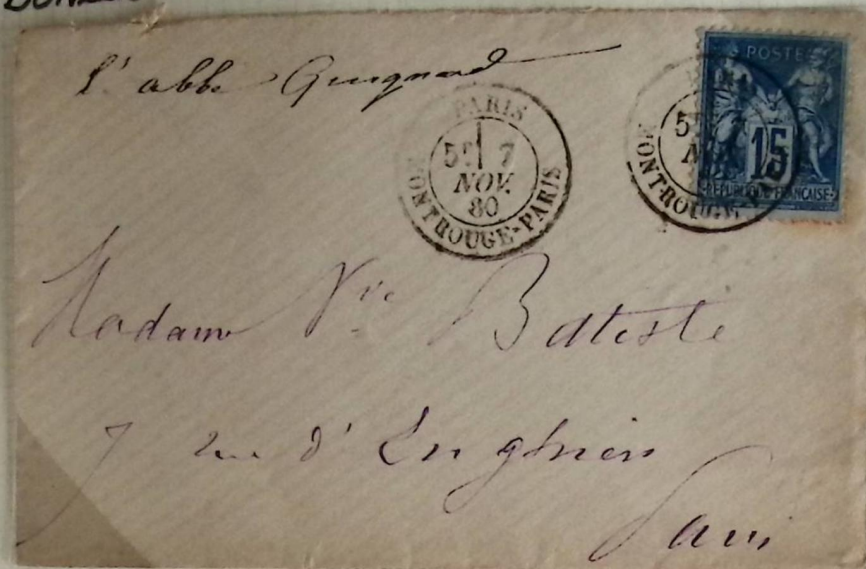 l'abbé Guignard
PARIS
5E 7
NOV.
80
MONTROUGE-PARIS
POSTE
15
REPUBLIQUE FRANÇAISE
5E 7
MONTROUGE
Madame Vve Batiste
7 rue d'Enghien
Paris